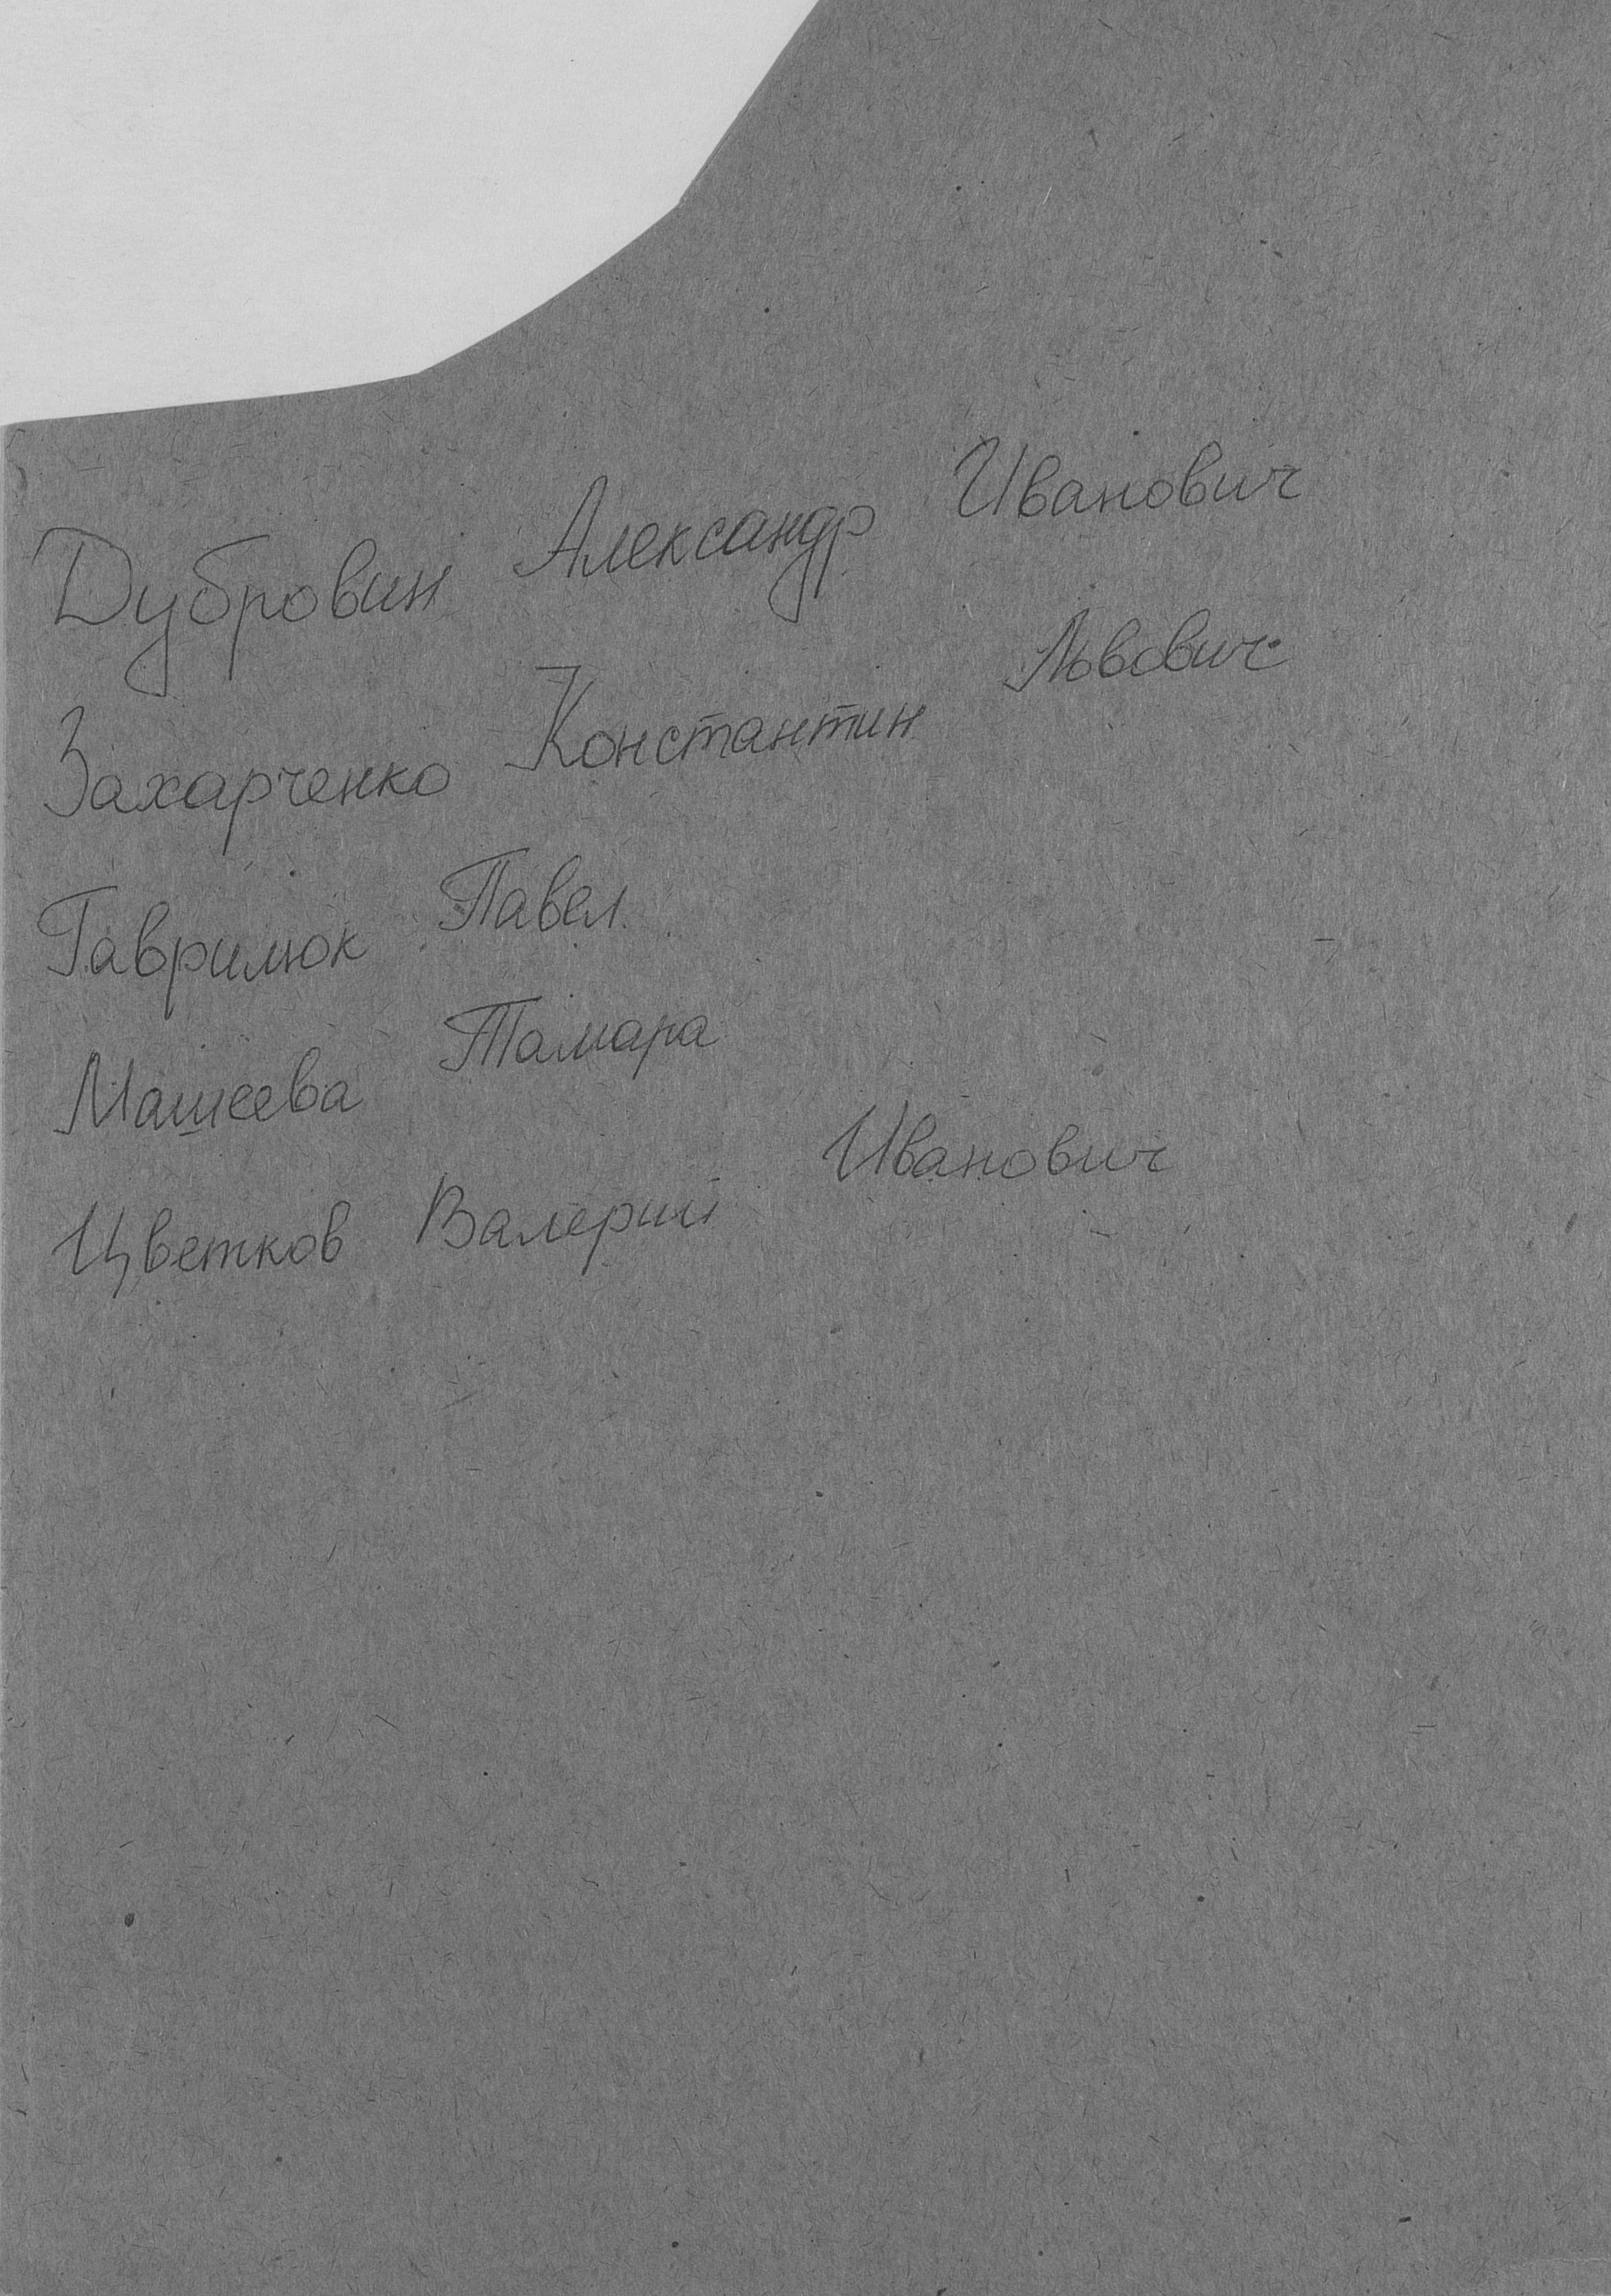 Дубровин Александр Иванович
Захарченко Константин Львович
Гаврилюк Павел
Машеева Тамара
Цветков Валерий Иванович